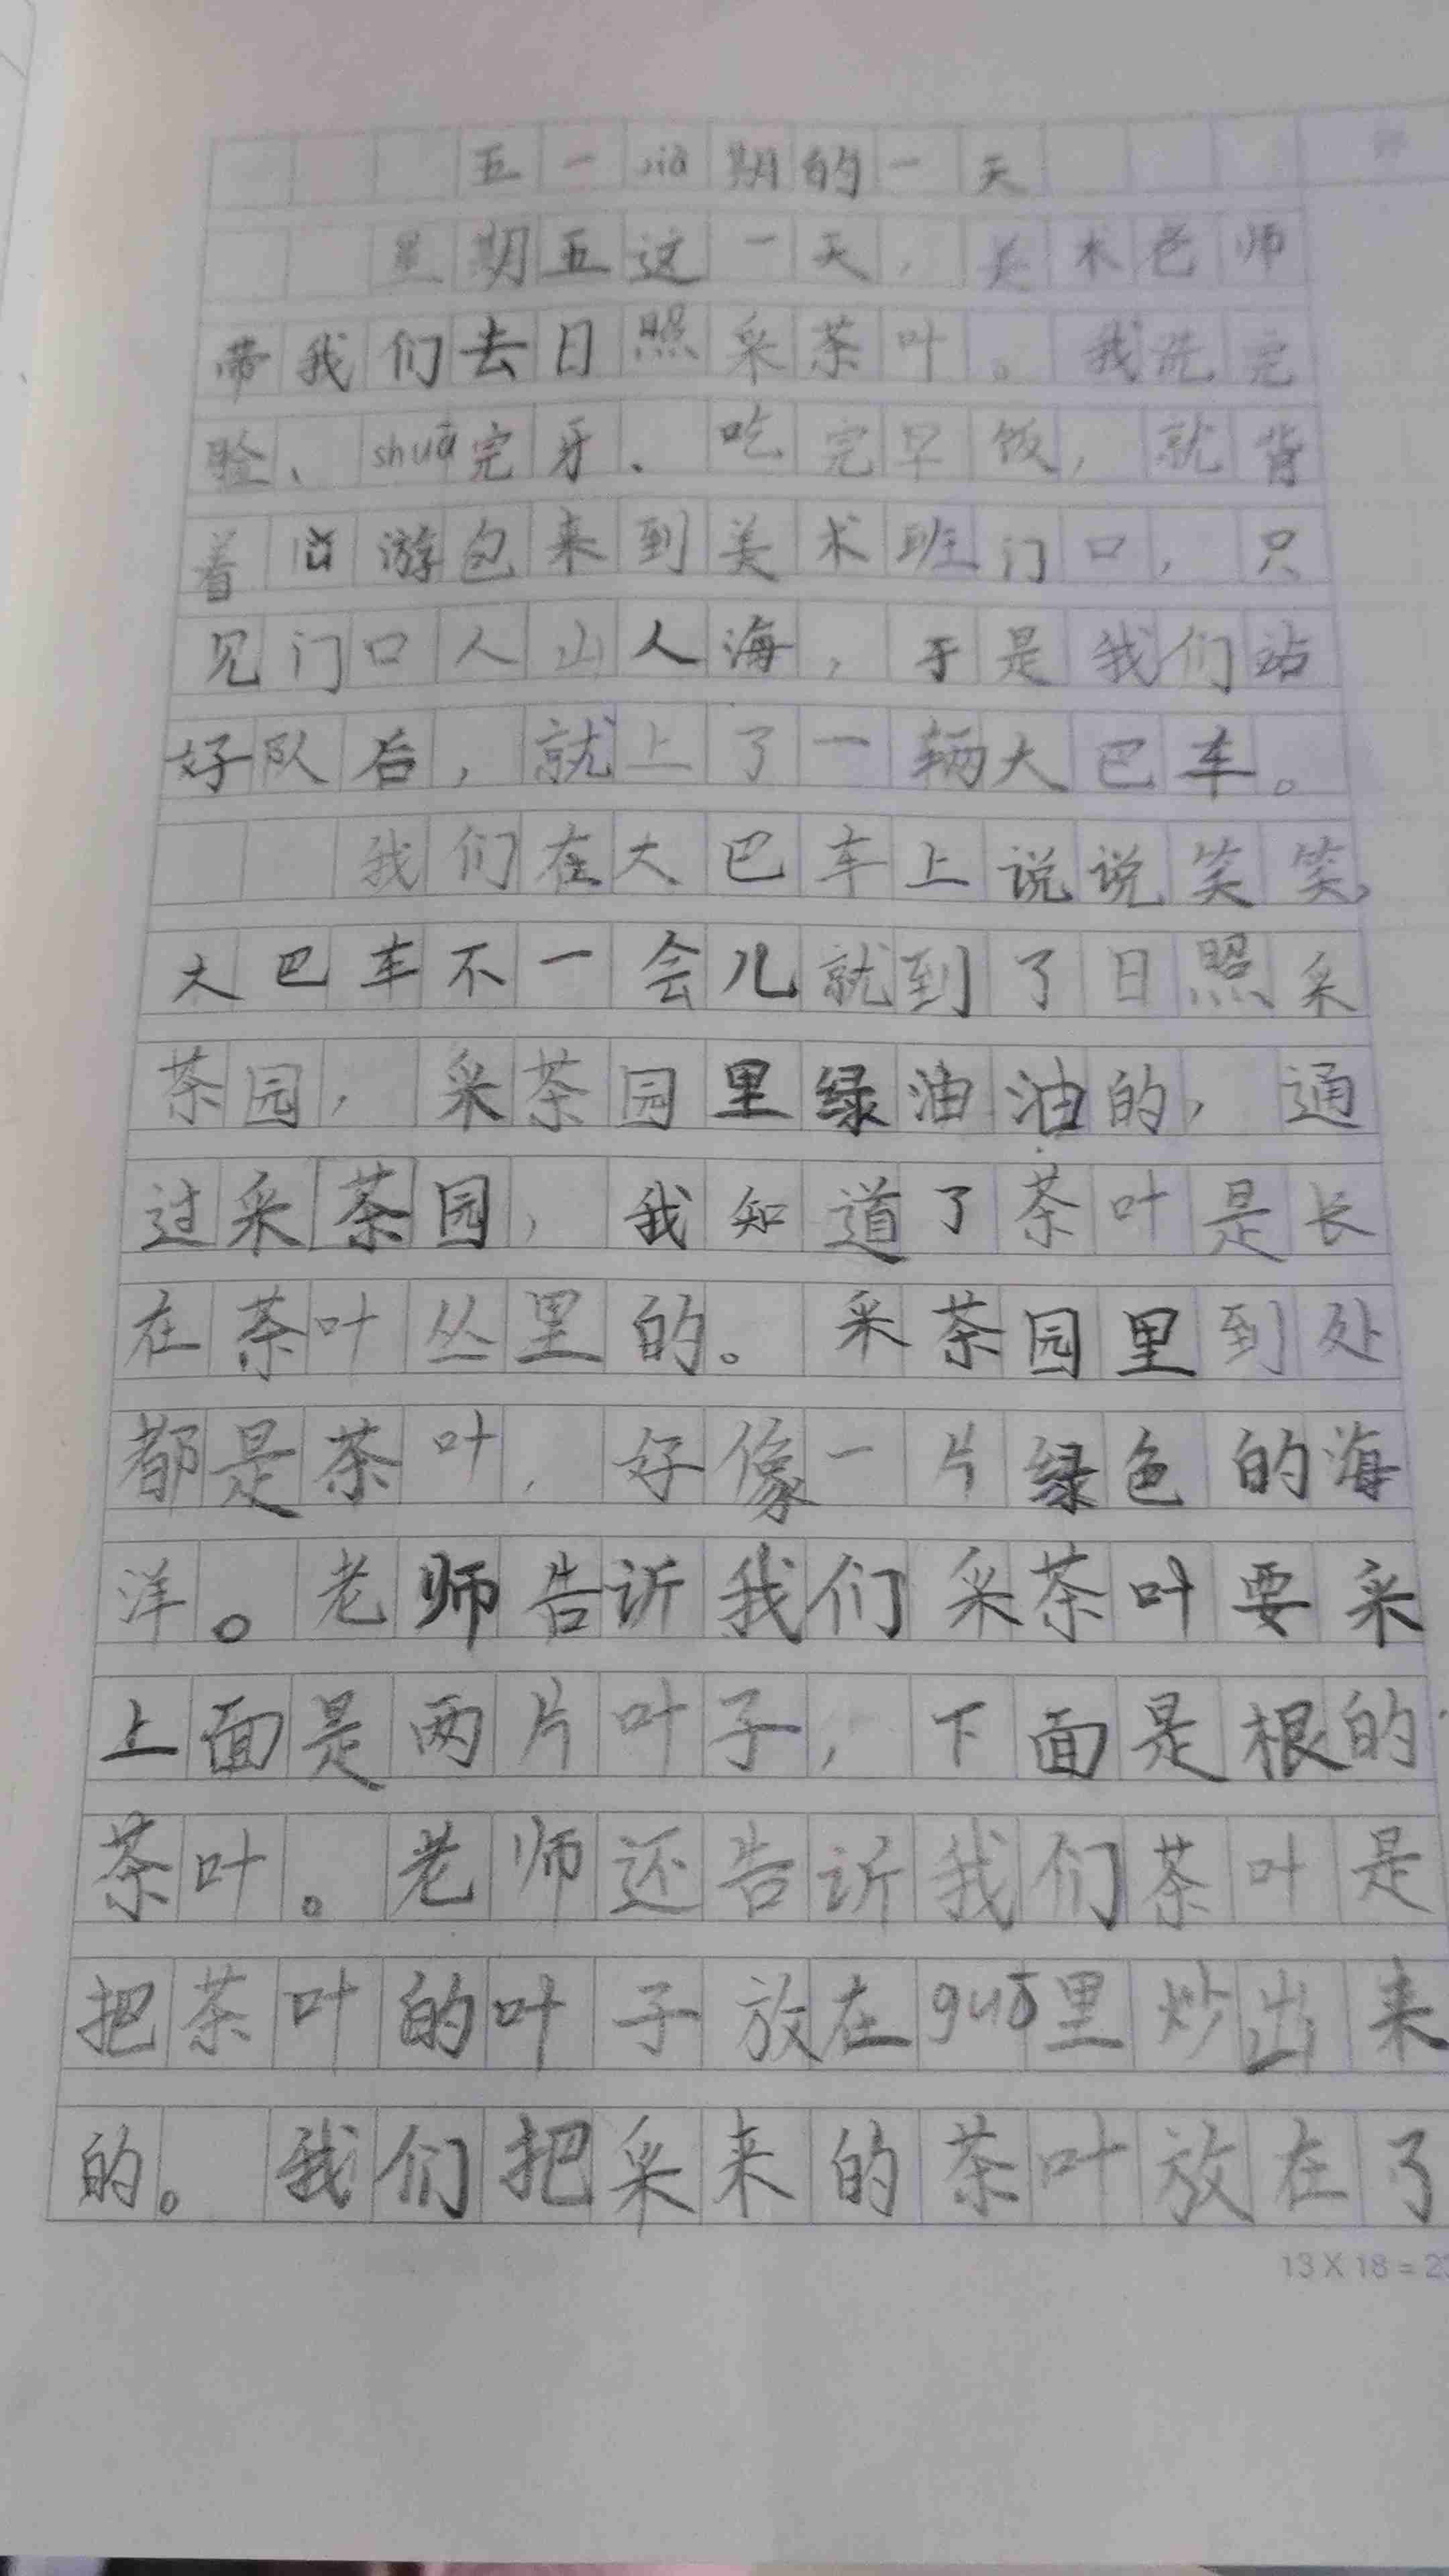 五一jià期的一天
星期五这一天，美术老师
带我们去日照采茶叶。我洗完
脸、shuā完牙、吃完早饭，就背
着lǚ游包来到美术班门口，只
见门口人山人海，于是我们站
好队后，就上了一辆大巴车。
我们在大巴车上说说笑笑，
大巴车不一会儿就到了日照采
茶园，采茶园里绿油油的，通
过采茶园，我知道了茶叶是长
在茶叶丛里的。采茶园里到处
都是茶叶，好像一片绿色的海
洋。老师告诉我们采茶叶要采
上面是两片叶子，下面是根的
茶叶。老师还告诉我们茶叶是
把茶叶的叶子放在guō里炒出来
的。我们把采来的茶叶放在了
13X18=2